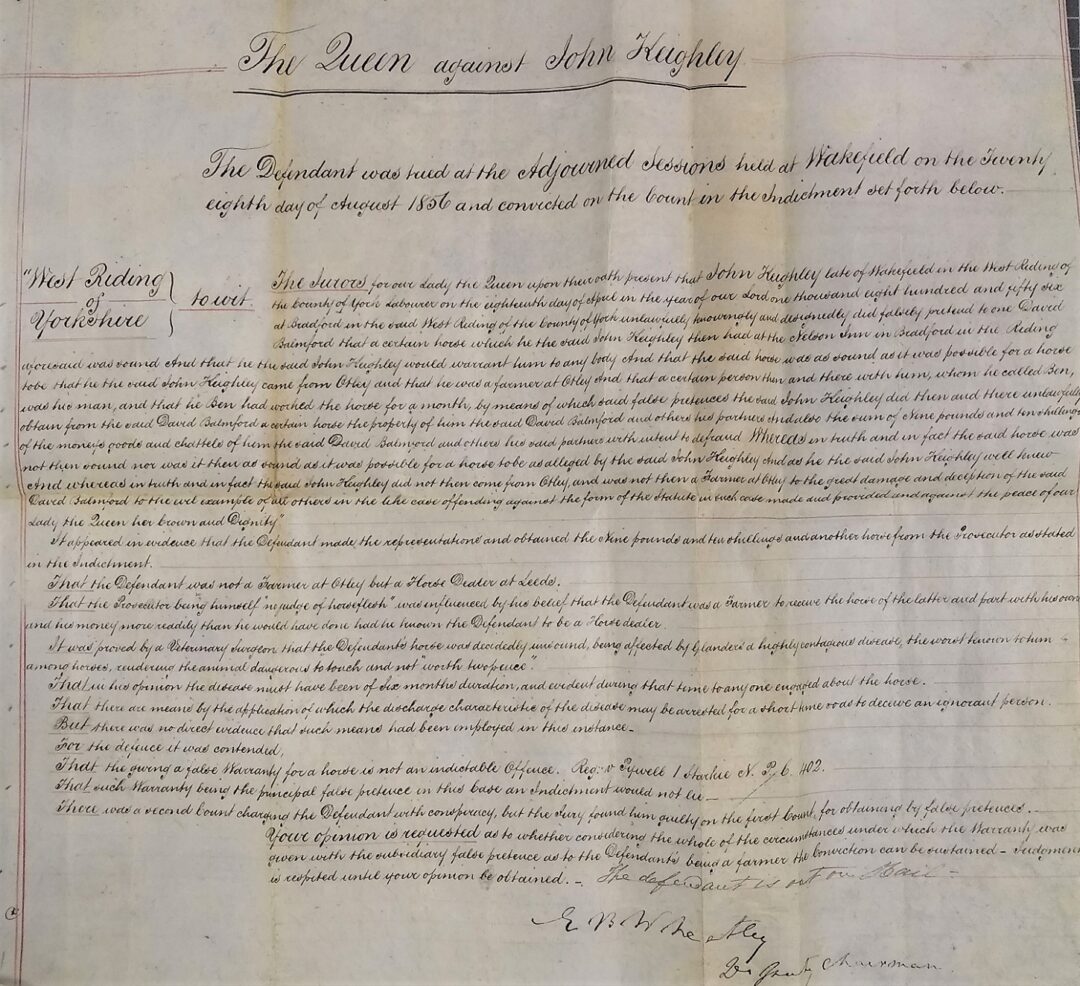 The Queen against John Keighley
The Defendant was tried at the Adjourned Sessions held at Wakefield on the Twenty
eighth day of August 1856 and convicted on the Count in the Indictment set forth below.
"West Riding
of
Yorkshire
to wit
The Jurors for our Lady the Queen upon their oath present that John Keighley late of Wakefield in the West Riding of
the County of York Labourer on the eighteenth day of April in the year of our Lord one thousand eight hundred and fifty six
at Bradford in the said West Riding of the County of York unlawfully, knowingly and designedly did falsely pretend to one David
Balmford that a certain horse which he the said John Keighley then had at the Nelson Inn in Bradford in the Riding
aforesaid was sound And that he the said John Keighley would warrant him to any body And that the said horse was as sound as it was possible for a horse
to be that he the said John Keighley came from Otley and that he was a farmer at Otley And that a certain person then and there with him, whom he called Ben,
was his man, and that he Ben had worked the horse for a month, by means of which said false pretences the said John Keighley did then and there unlawfully
obtain from the said David Balmford a certain horse the property of him the said David Balmford and others his partners And also the sum of Nine pounds and ten shillings
of the moneys goods and chattels of him the said David Balmford and others his said partners with intent to defraud Whereas in truth and in fact the said horse was
not then sound nor was it then as sound as it was possible for a horse to be as alleged by the said John Keighley And as he the said John Keighley well knew
And whereas in truth and in fact the said John Keighley did not then come from Otley, and was not then a Farmer at Otley to the great damage and deception of the said
David Balmford to the evil example of all others in the like case offending against the form of the Statute in such case made and provided and against the peace of our
Lady the Queen her Crown and Dignity"
It appeared in evidence that the Defendant made the representations and obtained the Nine pounds and ten shillings and another horse from the Prosecutor as stated
in the Indictment.
That the Defendant was not a Farmer at Otley but a Horse Dealer at Leeds.
That the Prosecutor being himself "no judge of horseflesh" was influenced by his belief that the Defendant was a Farmer to receive the horse of the latter and part with his own
and his money more readily than he would have done had he known the Defendant to be a Horse dealer.
It was proved by a Veterinary Surgeon that the Defendant's horse was decidedly unsound, being affected by Glanders a highly contagious disease, the worst known to him
among horses, rendering the animal dangerous to touch and not "worth twopence"
That in his opinion the disease must have been of Six months duration, and evident during that time to any one engaged about the horse.
That there are means by the application of which the discharge characteristic of the disease may be arrested for a short time so as to deceive an ignorant person.
But there was no direct evidence that such means had been employed in this instance.
For the defence it was contended,
That the giving a false Warranty for a horse is not an indictable Offence. Reg: v Pywell 1 Starkie N. P. C. 402.
That such Warranty being the principal false pretence in this case an Indictment would not lie
There was a second Count charging the Defendant with conspiracy, but the Jury found him guilty on the first Count, for obtaining by false pretences.
Your opinion is requested as to whether considering the whole of the circumstances under which the Warranty was
given with the subsidiary false pretence as to the Defendant's being a farmer the Conviction can be sustained - Judgment
is respited until your opinion be obtained. - The defendant is out on Bail -
E B Wheatley
Chairman